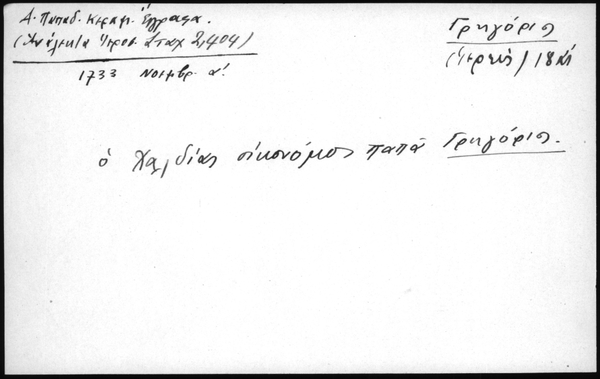 Α. Παπαδ. Κεραμ. Έγγραφα.
(Ανάλεκτα Ιεροσ. Σταχ 2,404)
1733 Νοεμβρ. α!
Γρηγόριος
(Ιερεύς) 18 αι
ὁ Χαλδίας οἰκονόμος παπᾶ Γρηγόριος.